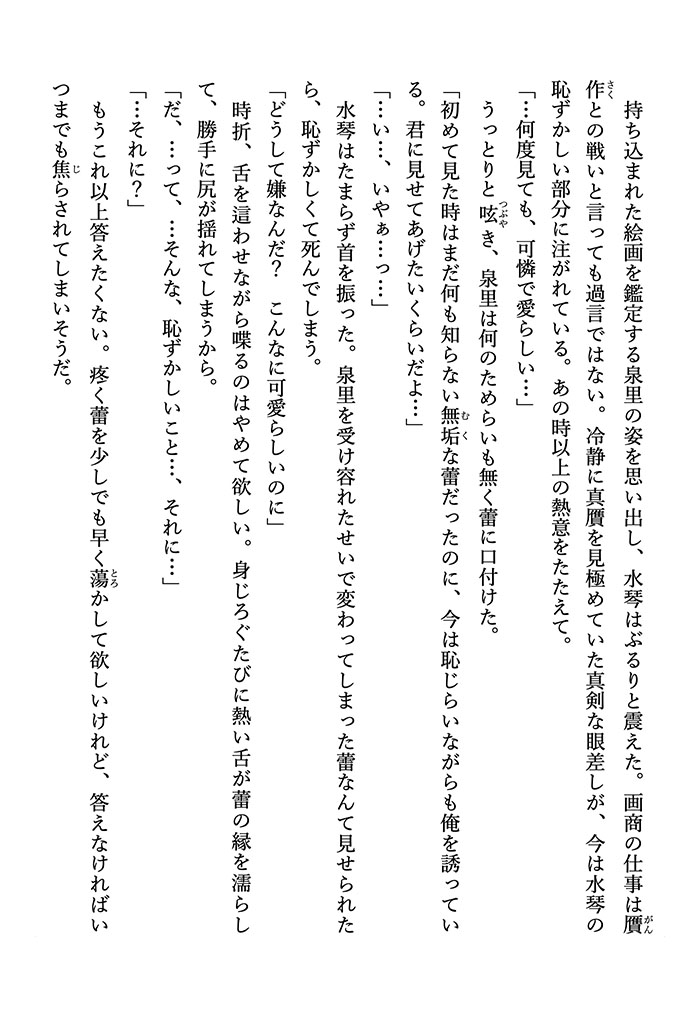 持ち込まれた絵画を鑑定する泉里の姿を思い出し、水琴はぶるりと震えた。画商の仕事は贋
がん
作との戦いと言っても過言ではない。冷静に真贋を見極めていた真剣な眼差しが、今は水琴の
さく
恥ずかしい部分に注がれている。あの時以上の熱意をたたえて。
「…何度見ても、可憐で愛らしい…」
うっとりと呟き、泉里は何のためらいも無く蕾に口付けた。
つぶや
「初めて見た時はまだ何も知らない無垢な蕾だったのに、今は恥じらいながらも俺を誘ってい
むく
る。君に見せてあげたいくらいだよ…」
「…い…、いやぁ…っ…」
水琴はたまらず首を振った。泉里を受け容れたせいで変わってしまった蕾なんて見せられた
ら、恥ずかしくて死んでしまう。
「どうして嫌なんだ？　こんなに可愛らしいのに」
時折、舌を這わせながら喋るのはやめて欲しい。身じろぐたびに熱い舌が蕾の縁を濡らし
て、勝手に尻が揺れてしまうから。
「だ、…って、…そんな、恥ずかしいこと…、それに…」
「…それに？」
もうこれ以上答えたくない。疼く蕾を少しでも早く蕩かして欲しいけれど、答えなければい
とろ
つまでも焦らされてしまいそうだ。
じ